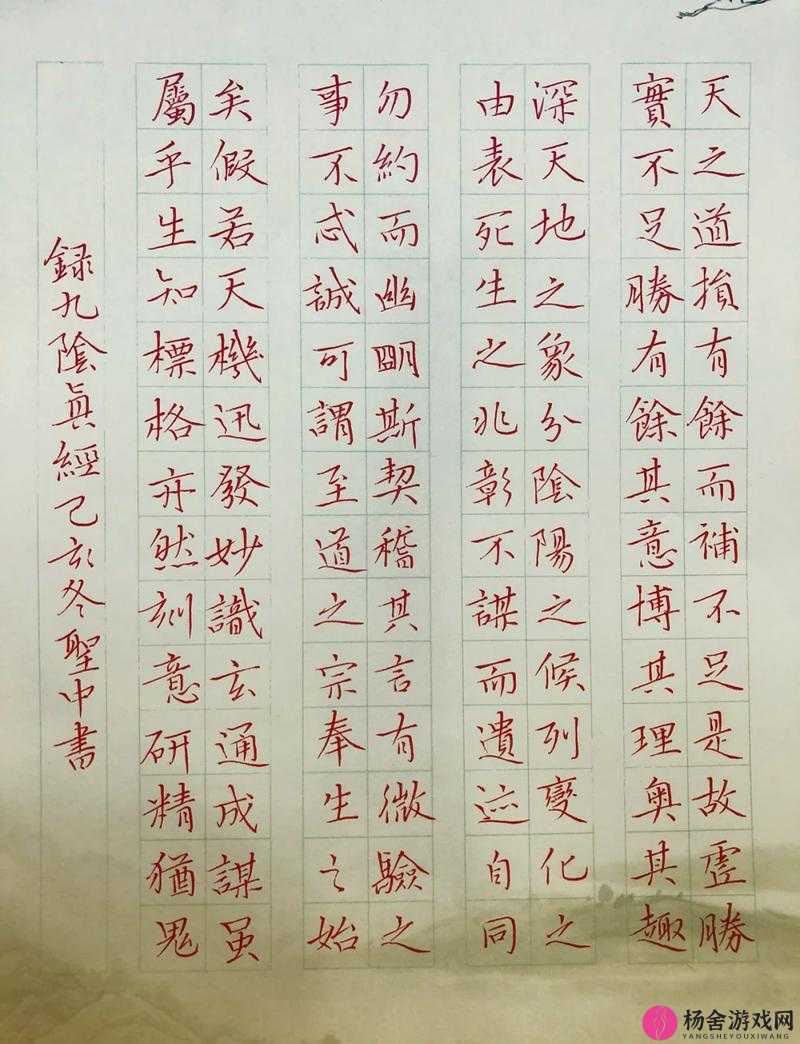 天之道損有餘而補不足是故虛勝
實不足勝有餘其意博其理奥其趣
深天地之象分陰陽之候列變化之
由表死生之兆彰不謀而遺迹自同
勿約而幽明斯契稽其言有微驗之
事不忒誠可謂至道之宗奉生之始
矣假若天機迅發妙識玄通成謀雖
屬乎生知標格亦然刻意研精猶鬼
録九陰真經己亥冬聖中書
杨舍游戏网
YANGSHEYOUXIWANG